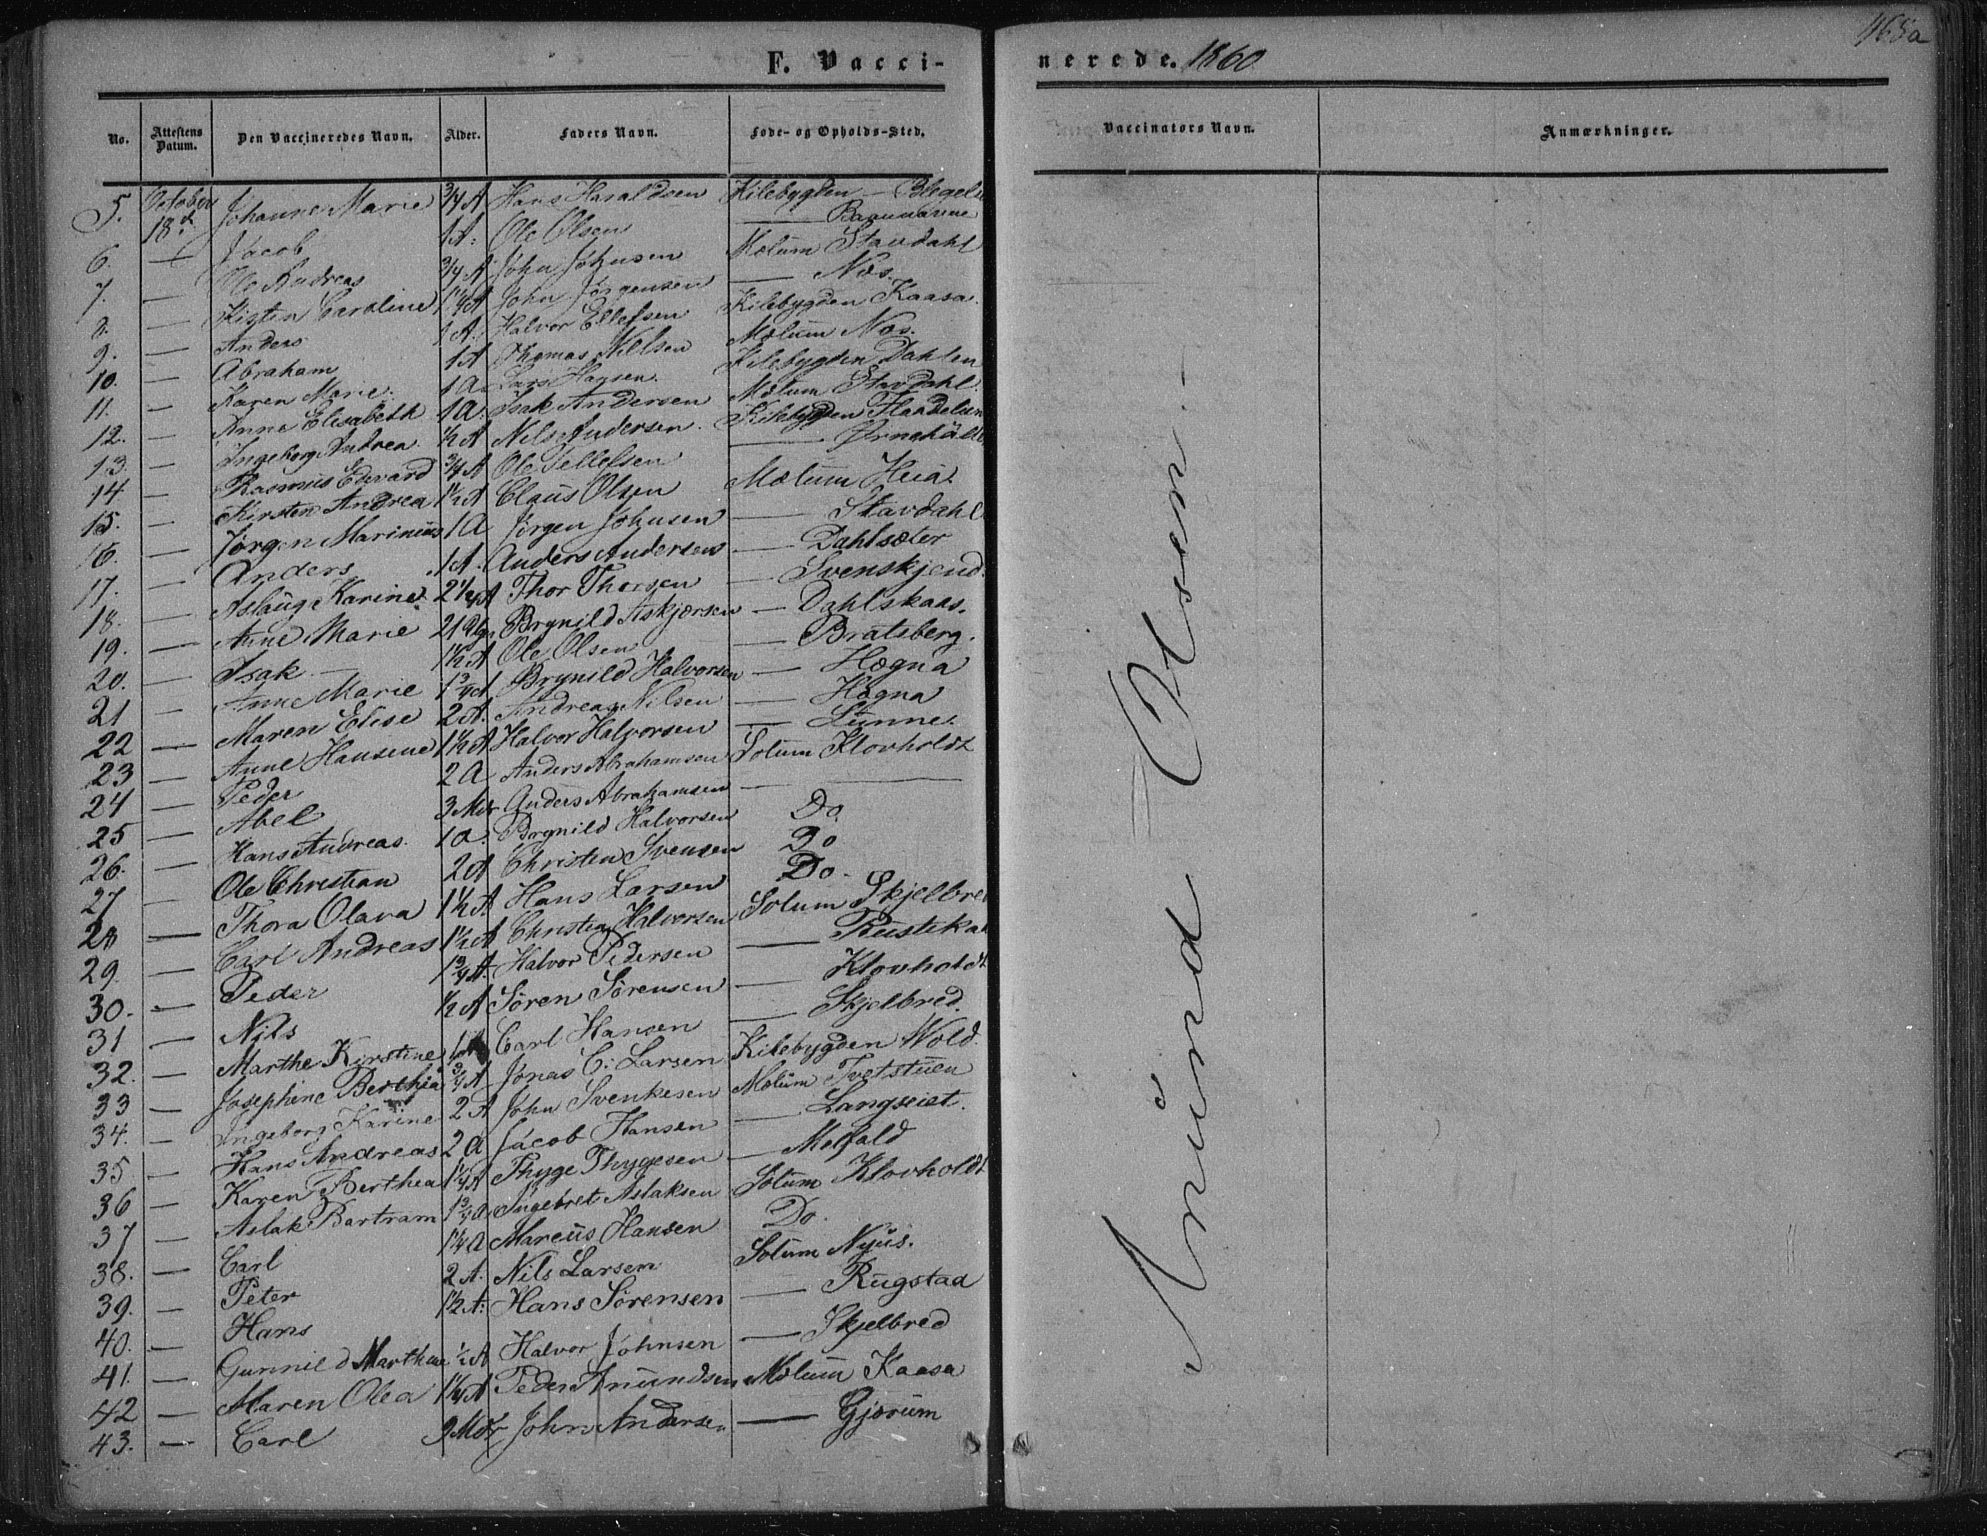 468a
F. Vacci- nerede. 1860
No. Attestens Datum. Den Vaccineredes Navn. Alder. Faders Navn. Føde- og Opholds-Sted. Vaccinators Navn. Anmærkninger.
5. October 18d Johanne Marie 3/4 A Hans Haraldsen Kilebygden —
6. — Jacob 1 A. Ole Olsen —
7. — Ole Andreas 3/4 A John Johnsen Mælum Stavdahl
8. — Kisten Caroline 1 1/4 A John Jørgensen — Næs.
9. — Anders 1 A. Halvor Ellefsen Kilebygden Kaasa.
10. — Abraham 1 A Thomas Nilsen Mælum Næs.
11. — Karen Marie. 1 A Lars Hansen. Kilebygden Dahlen
12. — Anne Elisabeth 1 A. Isak Andersen Mælum Stavdahl.
13. — Ingeborg Andrea 1/2 A Nils Andersen. Kilebygden
14 — Rasmus Edevard 3/4 A Ole Tellefsen —
15. — Kirsten Andrea 1 1/2 A Claus Olsen Mælum Heia.
16. — Jørgen Marinius 1 A Jørgen Johnsen — Stavdahl
17. — Anders 1 A. Anders Andersen — Dahlsæter
18. — Aslaug Karine 2 1/4 A Thor Thorsen — Svenskjend.
19. — Anne Marie 21 Ugr Brynild Askjærsen — Dahlskaas.
20. — Isak — 1 1/2 A Ole Olsen — Bratsberg.
21 — Anne Marie 1 3/4 A Brynild Halvorsen — Høgna
22 — Maren Elise 2 A. Andreas Nilsen — Høgna
23 — Anne Hansine 1 1/2 A Halvor Halvorsen — Lunne.
24 — Peder 2 A Anders Abrahamsen Solum Klovholdt
25 — Abel 3 Mdr Anders Abrahamsen —
26. — Hans Andreas. 1 A. Brynild Halvorsen Do
27 — Ole Christian 2 A Christen Svensen Do
28 — Thora Olava 1 1/2 A. Hans Larsen Do.
29. — Carl Andreas 1 1/2 A Christen Halvorsen Solum Skjelbred
30. — Peder 1 3/4 A. Halvor Pedersen —
31 — Nils 1/2 A Søren Sørensen — Klovholdt
32. — Marthe Kirstine Carl Hansen — Skjelbred.
33 — Josephine Berthia 3/4 A Jonas C. Larsen Kilebygden Wold.
34. — Ingeborg Karine 2 A John Svenkesen Mælum Tvetstuen
35 — Hans Andreas 2 A Jacob Hansen — Langseiet.
36 — Karen Berthea 1 1/4 A Thyge Thygesen — Melfald
37 — Aslak Bertram 1 3/4 A Ingebret Aslaksen Solum Klovholdt
38. — Carl 1 1/4 A Marcus Hansen Do.
39. — Peter 2 A. Nils Larsen Solum Nyus.
40. — Hans 1 1/2 A. Hans Sørensen — Rugstad
41. — Gunnild Marthea 1/2 A Halvor Johnsen — Skjelbred
42 — Maren Olea 1 1/4 A Peder Anundsen Mælum Kaasa
43. — Carl 9 Mdr John Andersen — Gjerum
Anund Olsen —